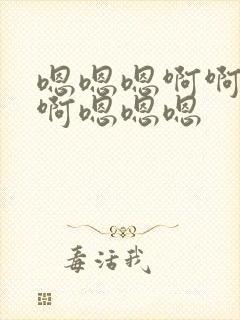 嗯嗯嗯啊啊
啊嗯嗯嗯
毒活我